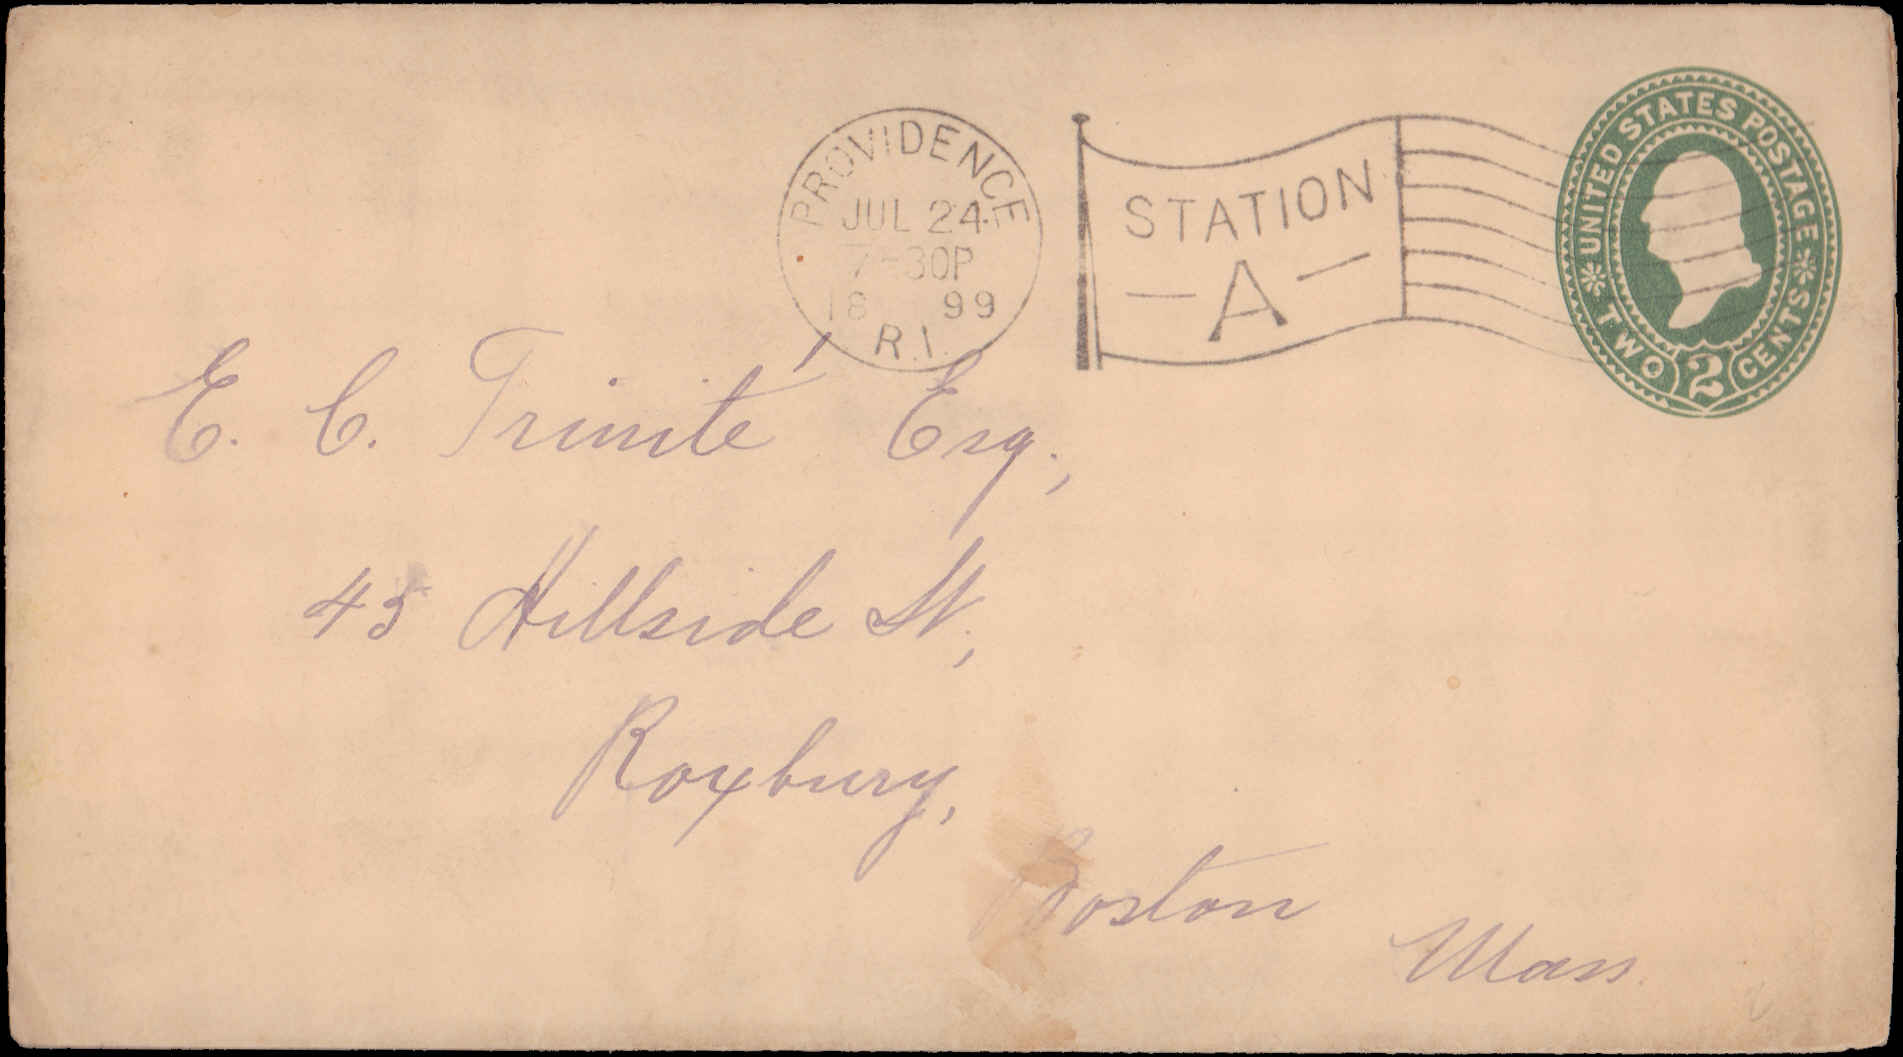 PROVIDENCE
JUL 24
7-30P
18 99
R.I.
STATION
— A —
UNITED STATES POSTAGE
TWO 2 CENTS
E. C. Trinité Esq.,
45 Hillside St,
Roxbury,
Boston
Mass